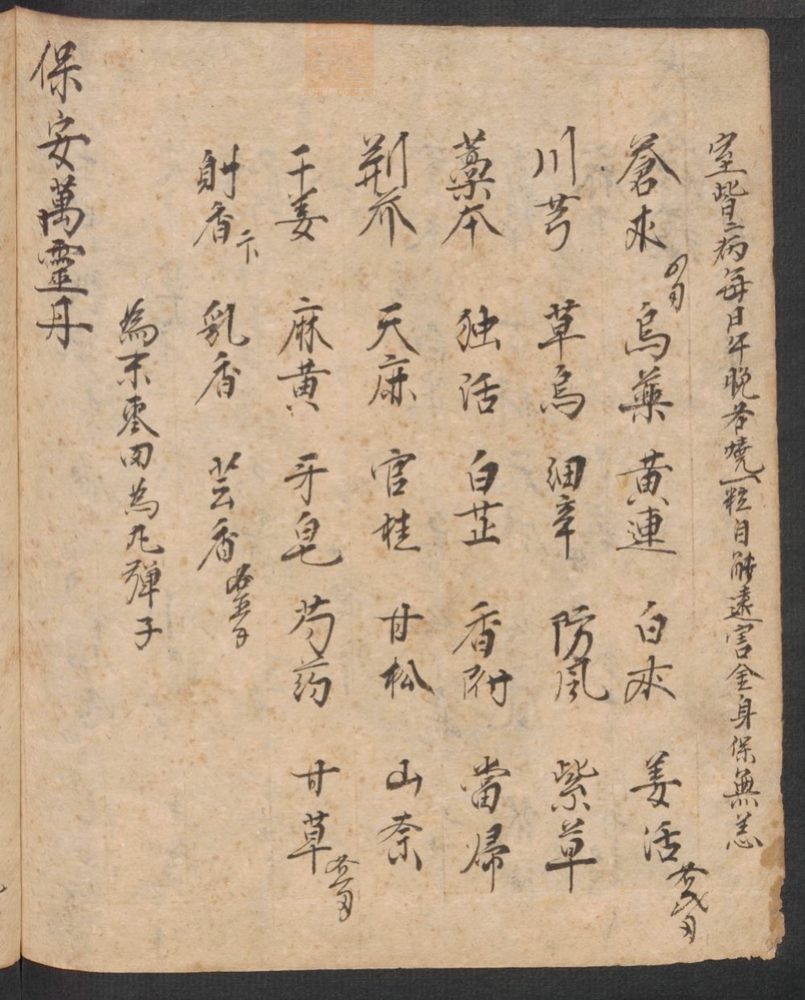 室皆二病每日午晚各燒一粒自能遠害全身保無恙
蒼朮 烏藥 黃連 白朮 姜活
川芎 草烏 細辛 防風 紫草
藁本 独活 白芷 香附 當歸
荆芥 天麻 官桂 甘松 山奈
干姜 麻黃 牙皂 芍药 甘草
射香 乳香 芸香
為末 為丸弹子
保安萬靈丹